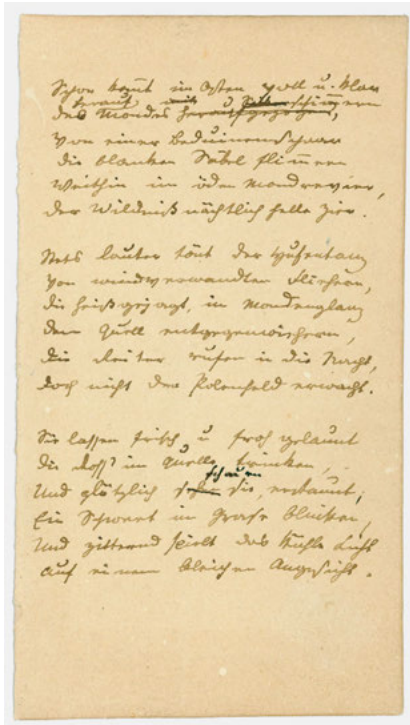 Schon kommt im Osten voll u. klar
herauf mit d Silberschimmern
des Mondes heraufgezogen,
Von einer Beduinenschaar
die blanken Säbel flimmern
Weithin im öden Mondrevier,
der Wildniß nächtlich helle Zier.
Stets lauter tönt der Hufentanz
Von windverwandten Fliehern,
die heißgejagt, im Mondenglanz
dem Quell entgegenwiehern,
die Reiter rufen in die Nacht,
doch nicht der Polenheld erwacht.
Sie lassen frisch u froh gelaunt
die Ross' im Quelle trinken,
schauen
Und plötzlich sehn sie, erstaunt,
Ein Schwert im Grase blinken,
Und zitternd spielt das kühle Licht
Auf einem bleichen Angesicht.